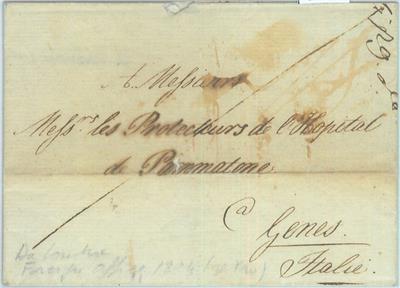 A Messieurs
Mess.rs les Protecteurs de l'Hopital
de Pammatone
a
Genes.
Italie.
Da Londra
Foreign Office 1804